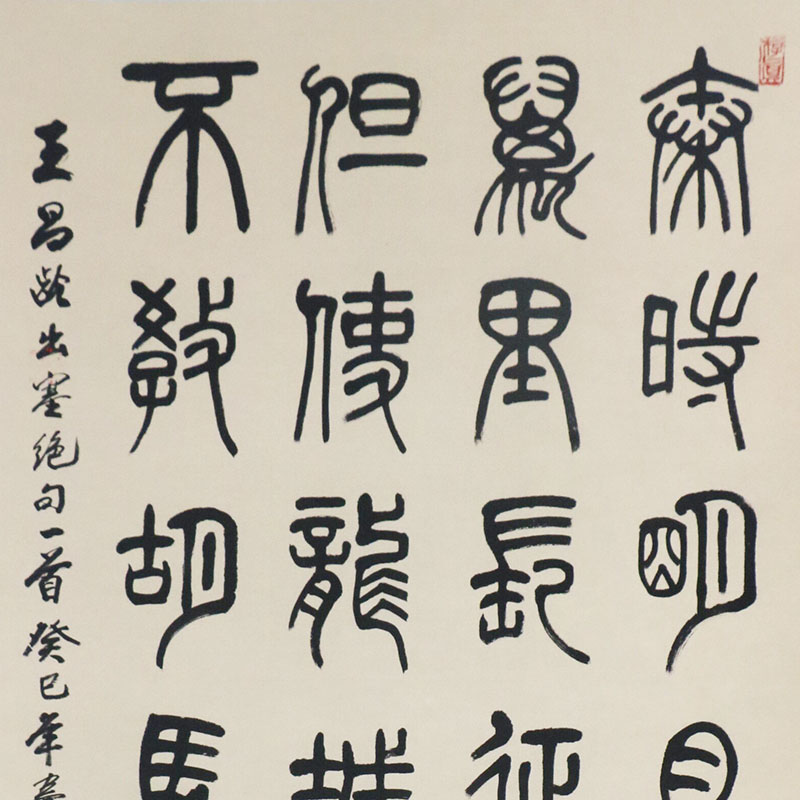 秦時明月
萬里長征
但使龍城
不教胡馬
王昌龄出塞绝句一首癸巳年